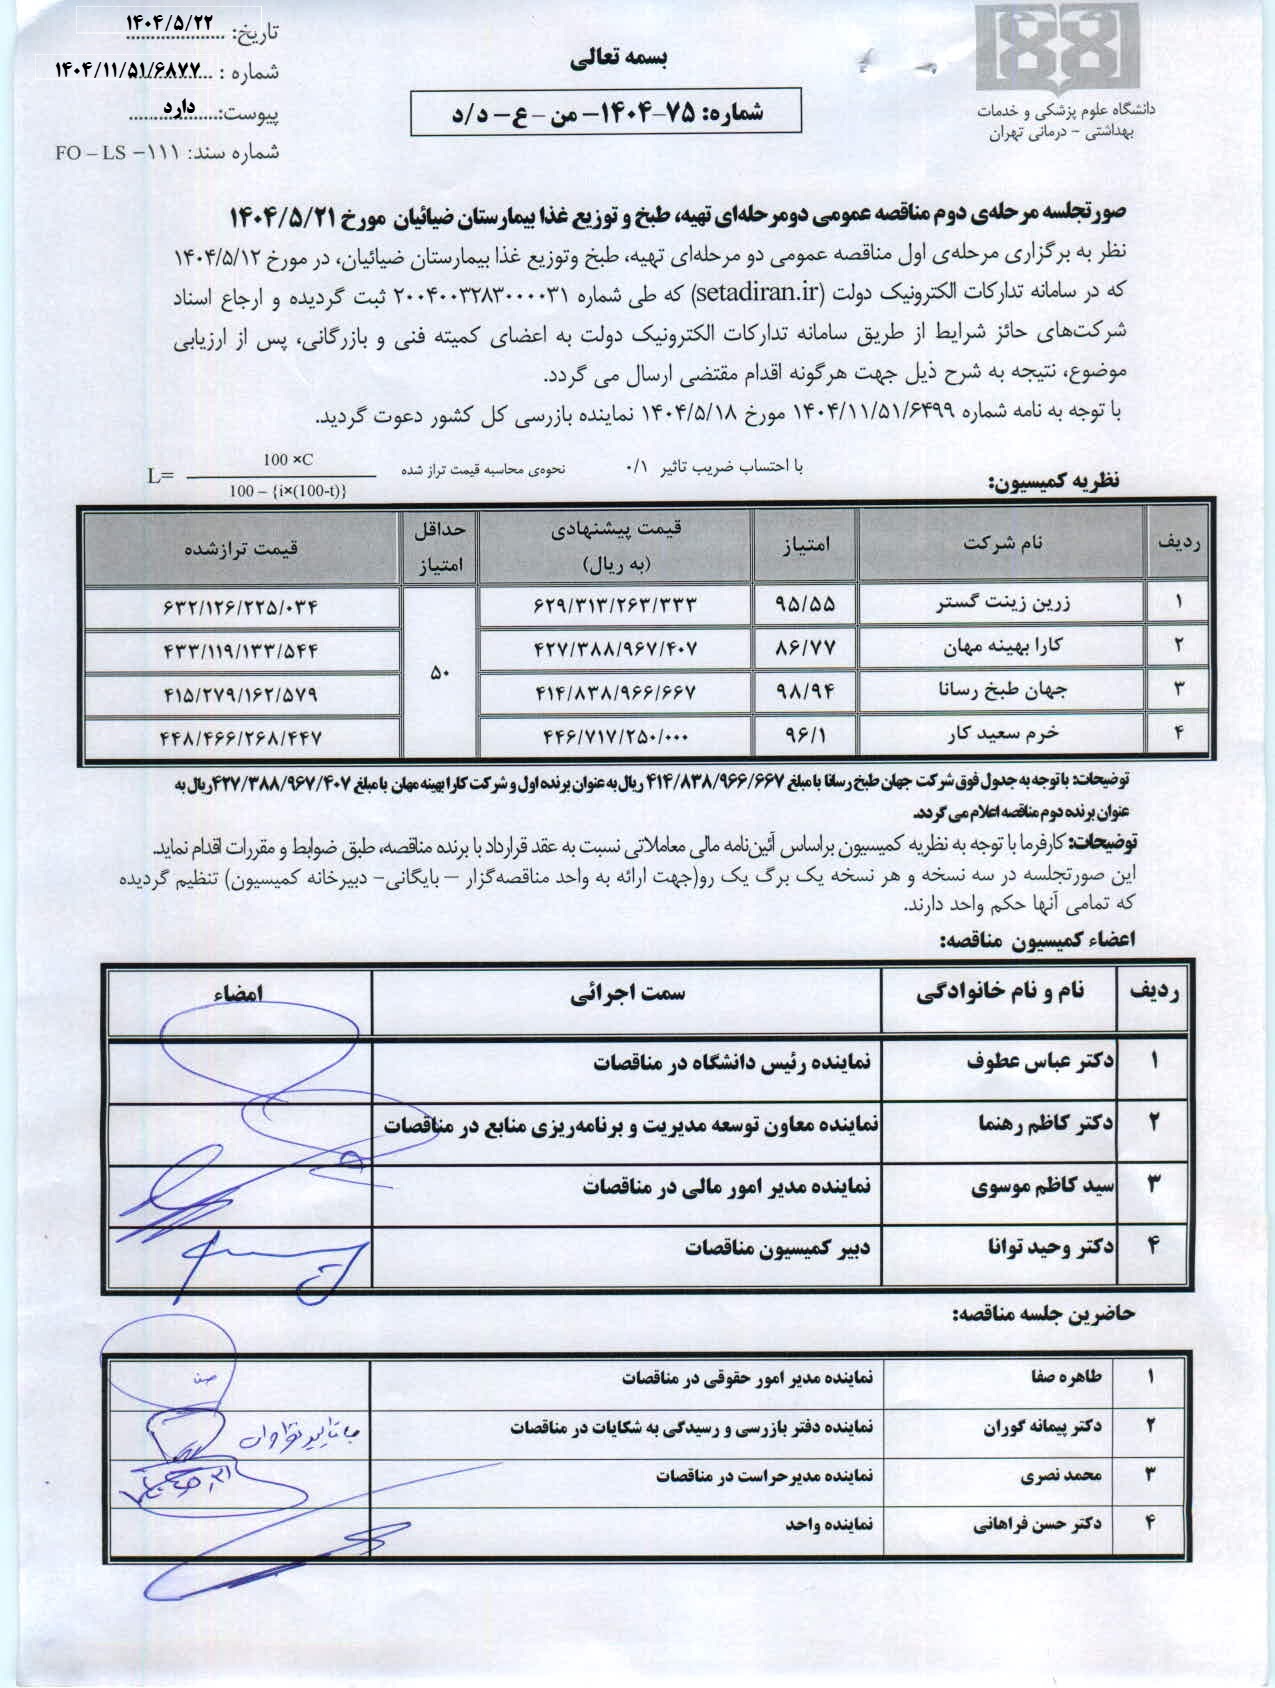 تاریخ: ۱۴۰۴/۵/۲۲
شماره : ۱۴۰۴/۱۱/۵۱/۶۸۷۷
پیوست: دارد
شماره سند: FO – LS –۱۱۱
دانشگاه علوم پزشکی و خدمات
بهداشتی – درمانی تهران
بسمه تعالی
شماره: ۷۵-۱۴۰۴- من -ع- د/د
صورتجلسه مرحله‌ی دوم مناقصه عمومی دومرحله‌ای تهیه، طبخ و توزیع غذا بیمارستان ضیائیان مورخ ۱۴۰۴/۵/۲۱
نظر به برگزاری مرحله‌ی اول مناقصه عمومی دو مرحله‌ای تهیه، طبخ وتوزیع غذا بیمارستان ضیائیان، در مورخ ۱۴۰۴/۵/۱۲
که در سامانه تدارکات الکترونیک دولت (setadiran.ir) که طی شماره ۲۰۰۴۰۰۳۲۸۳۰۰۰۰۳۱ ثبت گردیده و ارجاع اسناد
شرکت‌های حائز شرایط از طریق سامانه تدارکات الکترونیک دولت به اعضای کمیته فنی و بازرگانی، پس از ارزیابی
موضوع، نتیجه به شرح ذیل جهت هرگونه اقدام مقتضی ارسال می گردد.
با توجه به نامه شماره ۱۴۰۴/۱۱/۵۱/۶۴۹۹ مورخ ۱۴۰۴/۵/۱۸ نماینده بازرسی کل کشور دعوت گردید.
نظریه کمیسیون: با احتساب ضریب تاثیر ۰/۱ نحوه‌ی محاسبه قیمت تراز شده L= 100 ×C
100 – {i×(100-t)}
ردیف نام شرکت امتیاز قیمت پیشنهادی (به ریال) حداقل امتیاز قیمت ترازشده
۱ زرین زینت گستر ۹۵/۵۵ ۶۲۹/۳۱۳/۲۶۳/۳۳۳ ۶۳۲/۱۲۶/۲۲۵/۰۳۴
۲ کارا بهینه مهان ۸۶/۷۷ ۴۲۷/۳۸۸/۹۶۷/۴۰۷ ۴۳۳/۱۱۹/۱۳۳/۵۴۴
۵۰
۳ جهان طبخ رسانا ۹۸/۹۴ ۴۱۴/۸۳۸/۹۶۶/۶۶۷ ۴۱۵/۲۷۹/۱۶۲/۵۷۹
۴ خرم سعید کار ۹۶/۱ ۴۴۶/۷۱۷/۲۵۰/۰۰۰ ۴۴۸/۴۶۶/۲۶۸/۴۴۷
توضیحات: با توجه به جدول فوق شرکت جهان طبخ رسانا با مبلغ ۴۱۴/۸۳۸/۹۶۶/۶۶۷ ریال به عنوان برنده اول و شرکت کارا بهینه مهان با مبلغ ۴۲۷/۳۸۸/۹۶۷/۴۰۷ریال به
عنوان برنده دوم مناقصه اعلام می گردد.
توضیحات: کارفرما با توجه به نظریه کمیسیون براساس آئین‌نامه مالی معاملاتی نسبت به عقد قرارداد با برنده مناقصه، طبق ضوابط و مقررات اقدام نماید.
این صورتجلسه در سه نسخه و هر نسخه یک برگ یک رو(جهت ارائه به واحد مناقصه‌گزار – بایگانی- دبیرخانه کمیسیون) تنظیم گردیده
که تمامی آنها حکم واحد دارند.
اعضاء کمیسیون مناقصه:
ردیف نام و نام خانوادگی سمت اجرائی امضاء
۱ دکتر عباس عطوف نماینده رئیس دانشگاه در مناقصات
۲ دکتر کاظم رهنما نماینده معاون توسعه مدیریت و برنامه‌ریزی منابع در مناقصات
۳ سید کاظم موسوی نماینده مدیر امور مالی در مناقصات
۴ دکتر وحید توانا دبیر کمیسیون مناقصات
حاضرین جلسه مناقصه:
۱ طاهره صفا نماینده مدیر امور حقوقی در مناقصات
۲ دکتر پیمانه گوران نماینده دفتر بازرسی و رسیدگی به شکایات در مناقصات
۳ محمد نصری نماینده مدیرحراست در مناقصات
۴ دکتر حسن فراهانی نماینده واحد